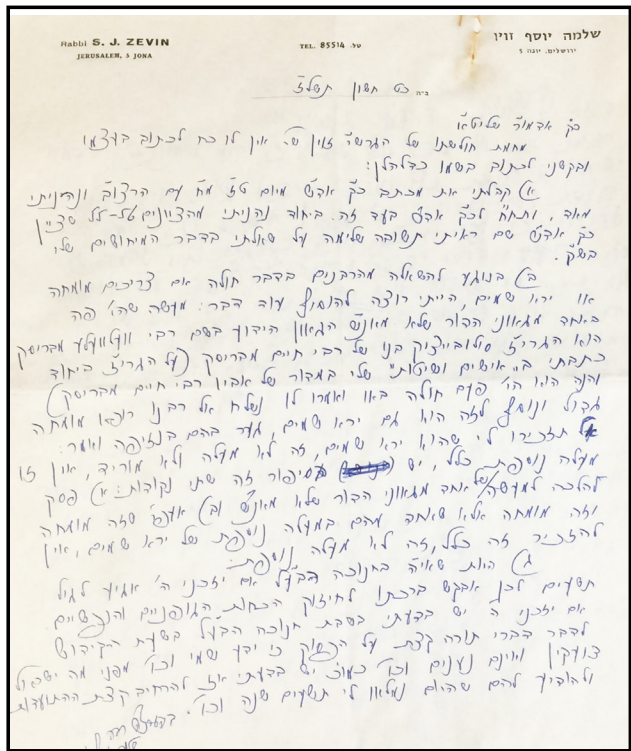 Rabbi S. J. ZEVIN
JERUSALEM, 5 JONA
TEL. 85514 טל.
שלמה יוסף זוין
ירושלים, יונה 5
ב״ה כט חשון תשל״ז
כ״ק אדמו״ר שליט״א
מחמת חולשתו של הגרש״י זוין שי׳ אין לו כח לכתוב בעצמו
ובקשני לכתוב בשמו כדלהלן:
א) קבלתי את מכתב כ״ק אד״ש מיום ט״ז מ״ח עם הרצוב ונהניתי
מאד, ותח״ח לכ״ק אד״ש בעד זה. ביחוד נהניתי מהציונים שציין
כ״ק אד״ש שם ראיתי תשובה שלימה על שאלתי בדבר המיחושים שלו
בש״ק.
ב) בנוגע להשאלה מהרבנים בדבר חולה אם צריכים מומחה
או ירא שמים, הייתי רוצה להוסיף עוד דבר: מעשה שהי׳ פה
באחד מגאוני הדור שלא מאנ״ש הגאון הידוע בשם רבי וועלוועלע מבריסק
הוא הגרי״ז סולובייציק בנו של רבי חיים מבריסק (על הגרי״ז ביחוד
כתבתי ב״אישים ושיטות״ שלי במדור של אביו רבי חיים מבריסק)
והנה הוא הי׳ פעם חולה באו ואמרו לו נשלח אל רבנו רופא מומחה
גדול ונוסף לזה הוא גם ירא שמים, גער בהם בנזיפה ואמר:
אל תזכירו לי שהוא ירא שמים, זה לא מעלה ולא מוריד, אין זו
מעלה נוספת כלל, יש בסיפור זה שתי נקודות: א) פסק
להלכה למעשה של אחד מגאוני הדור שלא מאנ״ש וב) אעפ״י שזה מומחה
וזה מומחה אלא שאחד מהם במעלה נוספת של ירא שמים, אין
להזכיר זה כלל, זה לא מעלה נוספת.
ג) היות שאי״ה בחנוכה הבע״ל אם יזכני ה׳ אגיע לגיל
תשעים לכן אבקש ברכתו לחיזוק הכחות הגופניים והנפשיים.
אם יזכני ה׳ יש בדעתי בשבת חנוכה הבע״ל בשעת הקידוש
לדבר דברי תורה קצת על הפסוק כי ידע שמי וכו׳ מפני מה ישראל
צועקין ואינם נענים וכו׳ כמו״כ יש בדעתי אז להרחיב קצת ההתועדות
ולהודיע להם שהיום נמלאו לי תשעים שנה וכו׳.